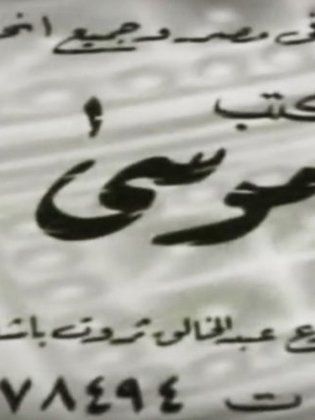 فى مصر وجميع انح
كتب
موسى
ع عبد الخالق ثروت باشا
ت ٧٨٤٩٤